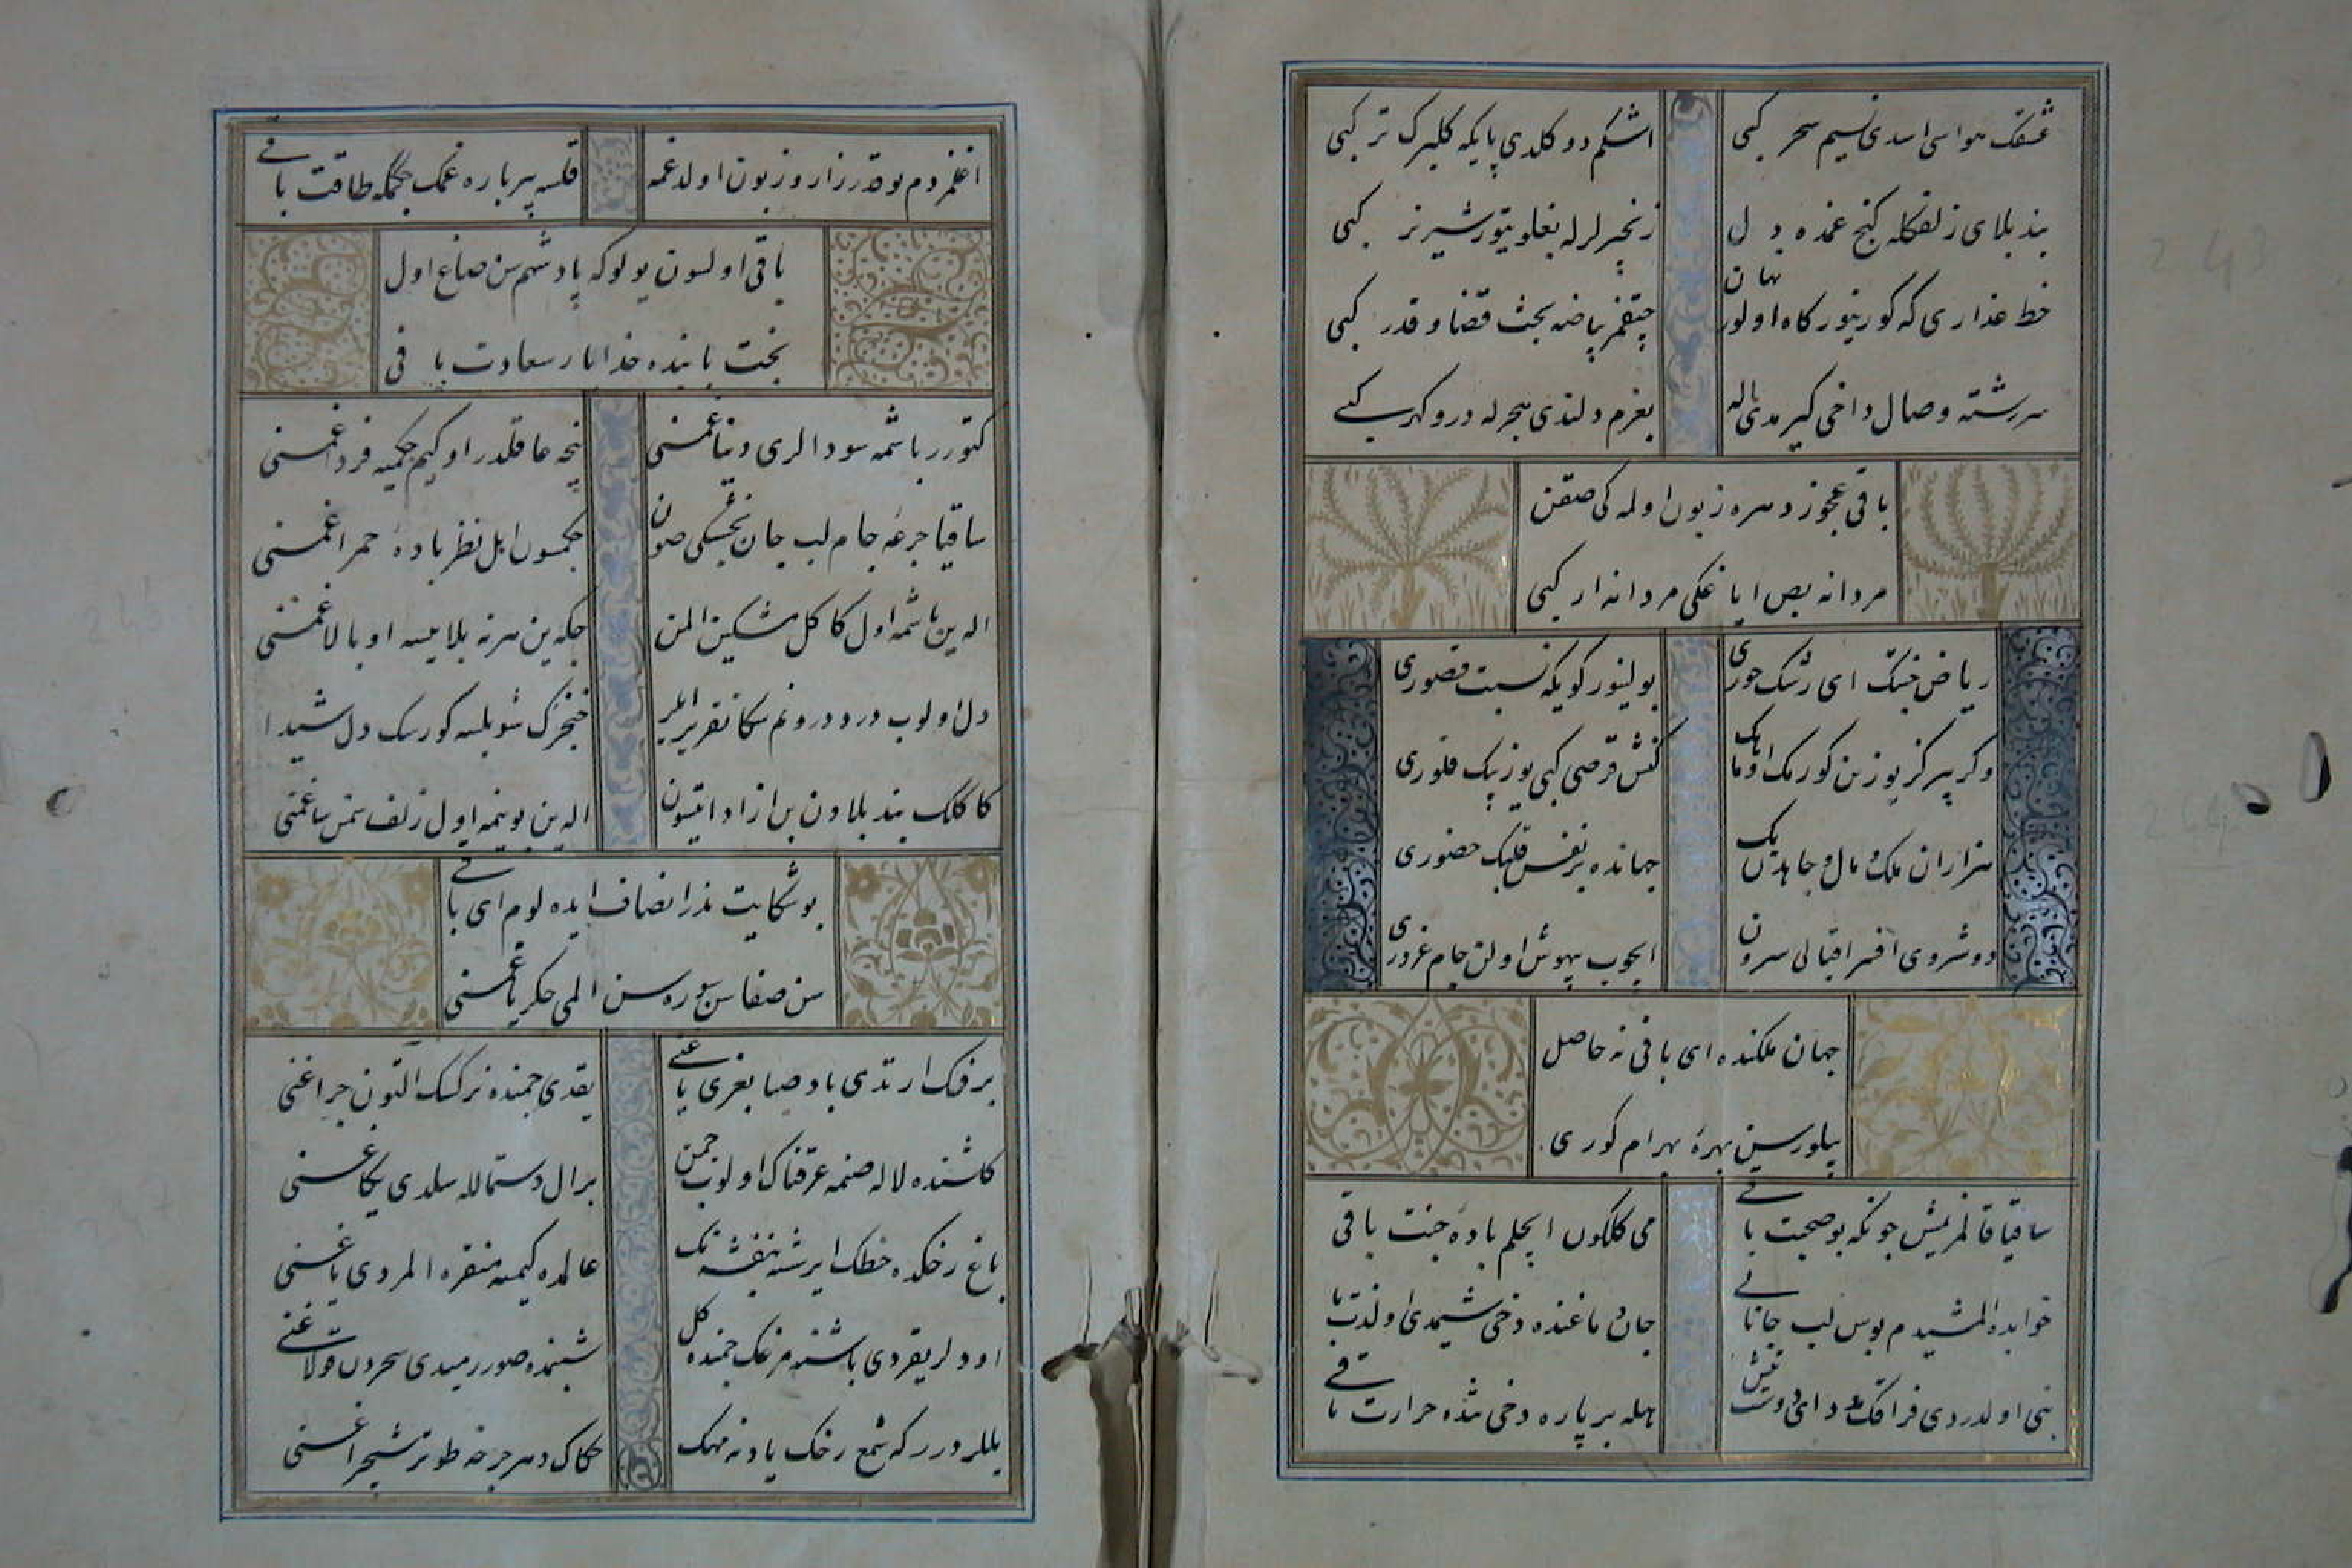 عشقك هواسی اسدی نسیم سحر كبی
اشكم دوكلدی پایكه كلبرك تر كبی
بند بلای زلفكله كنج غمده دل
زنجیرلرله بغلو یتور شیر نر كبی
خط عذاری كه كورینور كاه اولور نهان
چیقمز بیاضه بحث قضا و قدر كبی
سررشته وصال داخی كیرمدی اله
بغرم دلندی هجرله در و كهر كبی
باقی عجوز دهره زبون اولمه كی صقن
مردانه بص ایاغكی مردانه ار كبی
ریاض جنتك ای رشك حوری
بولینور كویكه نسبت قصوری
وكر بیر كز یوزین كورمك اوماك
كنش قرصی كبی یوز بیك فلوری
هزاران ملك و مال و جاهدن یك
جهانده بر نفس قلبك حضوری
دوشردی افسر اقبالی سردن
ایچوب بیهوش اولن جام غروری
جهان ملكنده ای باقی نه حاصل
بیلورسین بهره بهرام كوری
ساقیا قالمز ایمش چونكه بو صحبت باقی
می كلكون ایچلم باده جنت باقی
خوابده المشیدم بوس لب جانانی
جان دماغنده دخی شیمدی او لذت باقی
بنی اولدردی فراقك غمی دوست
هله بر پاره دخی تنده حرارت باقی
اغلمزدم بو قدر زار و زبون اولدغمه
قلسه بیر پاره غمك چكمكه طاقت باقی
باقی اولسون یولوكه پادشهم سن صاغ اول
بخت پاینده خدا یار سعادت باقی
كتورر باشمه سودالری دنیا غمنی
نیجه عاقلدر او كیم چكمیه فردا غمنی
ساقیا جرعه جام لب جان بخشكی صون
چكمسون اهل نظر باده حمرا غمنی
الدین باشمه اول كاكل مشكین المن
چكه ین هر نه بلاییسه او بالا غمنی
دل اولوب درد درونم سكا تقریر ایلر
خنجرك شویلسه كورسك دل شیدا
كاكلك بند بلادن بن ازاد ایتسون
الدین بوینمه اول زلف سمن سا غمنی
بو شكایت نه در انصاف ایده لوم ای باقی
سن صفاسن سوره سن المی چكر یا غمنی
بر فرك ارتدی باد صبا بغری یاغنی
یقدی چمنده نركسك التون چراغنی
كلشنده لاله صنمه عرقناك اولوب چمن
بر ال دستماله سلدی یكاغنی
باغ رخكده خطك ایرشه بنفشه نك
عالمده كیمسه منقره المردی یاغنی
اودلر یقردی باشنه مرغك چمنده كل
شبنمده صو ورمیدی سحردن قولاغنی
یللر دورر كه شمع رخك یادنه مهك
حكاك دهر چرخه طوتر شبچراغنی